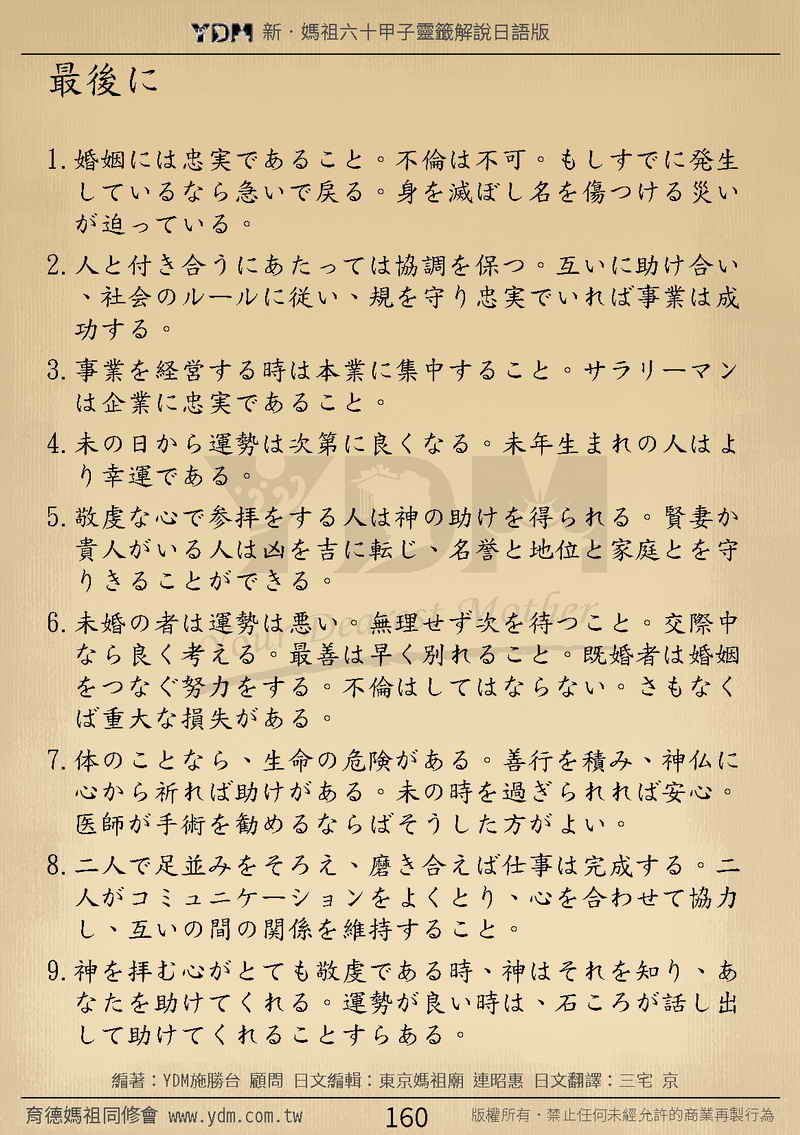 YDM 新・媽祖六十甲子靈籤解說日語版
最後に
1. 婚姻には忠実であること。不倫は不可。もしすでに発生
しているなら急いで戻る。身を滅ぼし名を傷つける災い
が迫っている。
2. 人と付き合うにあたっては協調を保つ。互いに助け合い
、社会のルールに従い、規を守り忠実でいれば事業は成
功する。
3. 事業を経営する時は本業に集中すること。サラリーマン
は企業に忠実であること。
4. 未の日から運勢は次第に良くなる。未年生まれの人はよ
り幸運である。
5. 敬虔な心で参拝をする人は神の助けを得られる。賢妻か
貴人がいる人は凶を吉に転じ、名誉と地位と家庭とを守
りきることができる。
6. 未婚の者は運勢は悪い。無理せず次を待つこと。交際中
なら良く考える。最善は早く別れること。既婚者は婚姻
をつなぐ努力をする。不倫はしてはならない。さもなく
ば重大な損失がある。
7. 体のことなら、生命の危険がある。善行を積み、神仏に
心から祈れば助けがある。未の時を過ぎられれば安心。
医師が手術を勧めるならばそうした方がよい。
8. 二人で足並みをそろえ、磨き合えば仕事は完成する。二
人がコミュニケーションをよくとり、心を合わせて協力
し、互いの間の関係を維持すること。
9. 神を拝む心がとても敬虔である時、神はそれを知り、あ
なたを助けてくれる。運勢が良い時は、石ころが話し出
して助けてくれることすらある。
YDM
Your Dearest Mother
編著：YDM施勝台 顧問 日文編輯：東京媽祖廟 連昭惠 日文翻譯：三宅 京
育德媽祖同修會 www.ydm.com.tw 160 版權所有・禁止任何未經允許的商業再製行為